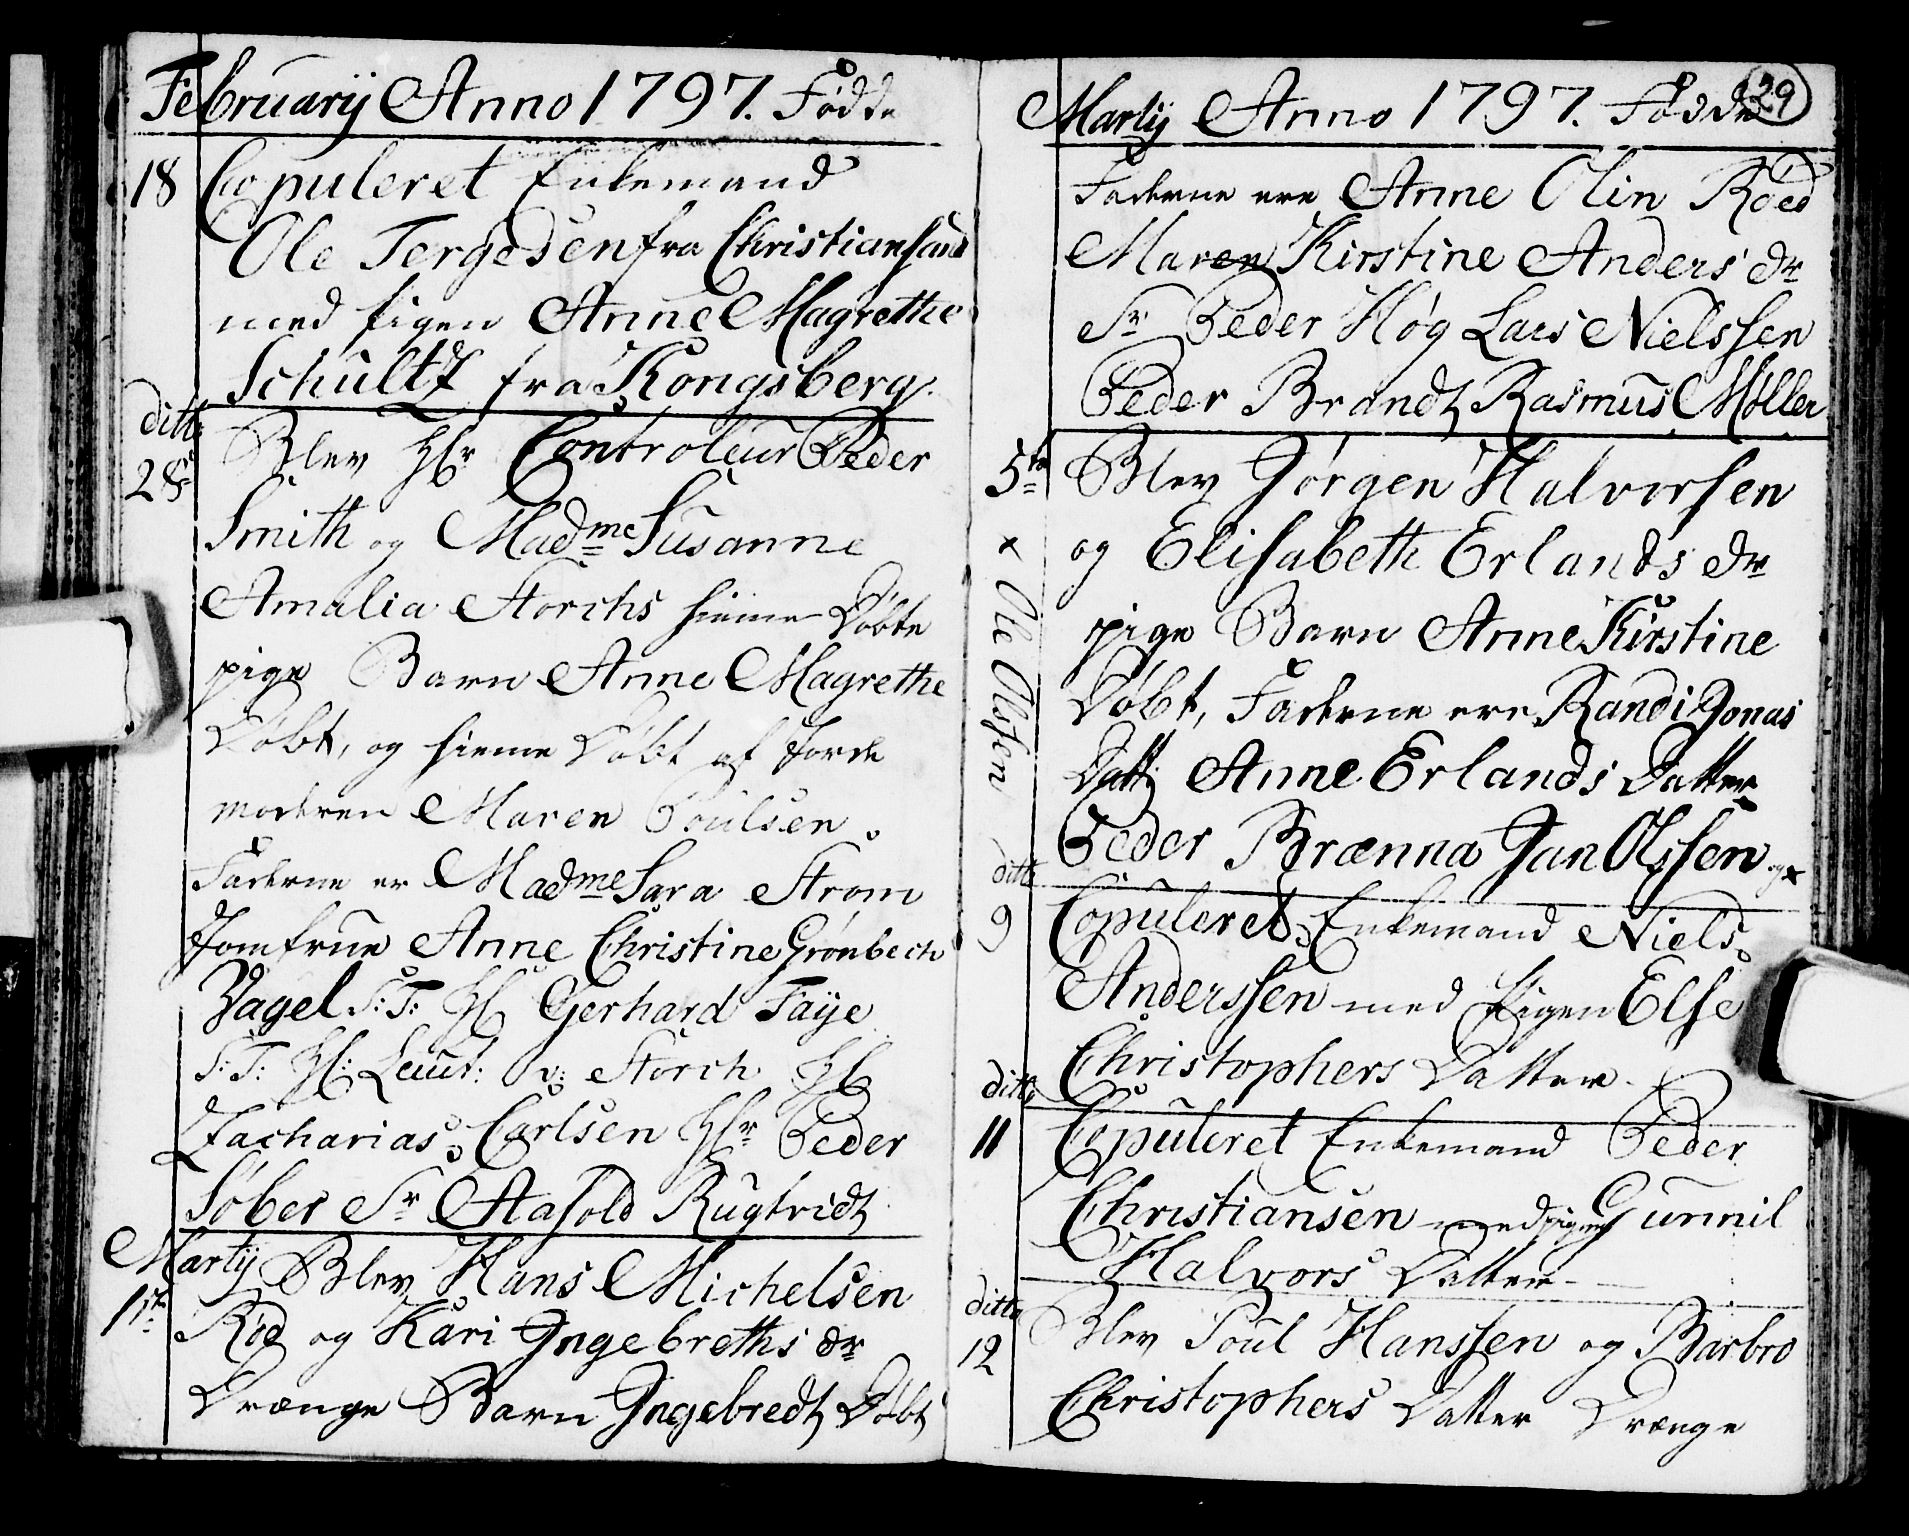 Februarij Anno 1797. Fødde
18 Copuleret Enkemand
Ole Tergesen fra Christiansand
med Pigen Anne Magrethe
Schultz fra Kongsberg.
ditto
28de Blev Hr Controleur Peder
Smith og Madme Susanne
Amalia Storchs hieme Døbte
pige Barn Anne Magrethe
Døbt, og hieme Døbt af Jorde
moderen Maren Poulsen.
Fadderne er Madme Sara Strøm
Jomfrue Anne Christine Grønbech
Vagel S:T: Hr Gerhard Faye
S:T: Hr: Leuut: v: Storch Hr
Zacharias Carlsen Hr Peder
Søber Sr Stasold Rugtvidt
Martij Blev Hans Michelsen
1ste Röd og Kari Ingebreths dr
Drænge Barn Ingebredt Døbt
Martij Anno 1797. Fødde 29
Fadderne ere Anne Olin Røed
Maren Kirstine Anders dr
Sr Peder Høg Lars Nielssen
Peder Brandt Rasmus Møller
5te Blev Jørgen Halvorsen
og Elisabeth Erlands dr
pige Barn Anne Kirstine
Døbt, Fadderne ere Randi Jonas
Datt: Anne Erlands Datter
Peder Brænna Jan Olssen og x
x Ole Olssen
ditto
9 Copuleret Enkemand Niels
Anderssen med Pigen Else
Christophers Datter.
ditto
11 Copuleret Enkemand Peder
Christiansen med pigen Gunnil
Halvors Datter
ditto
12 Blev Poul Hanssen og Barbro
Christophers Datter Drænge